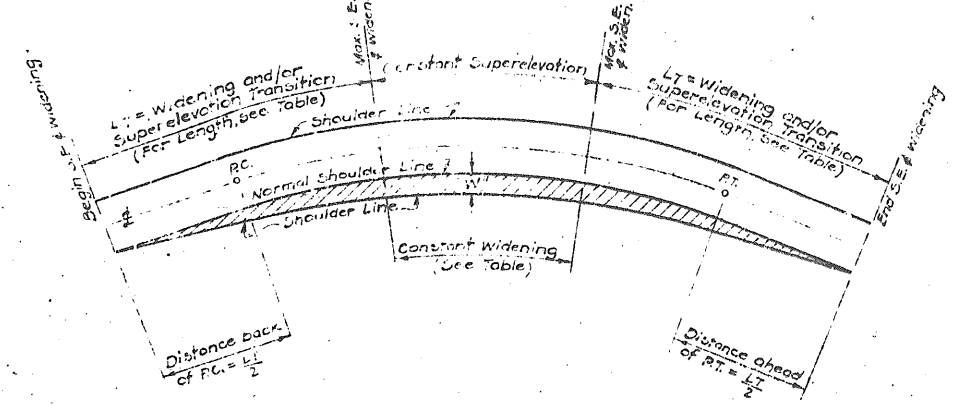 Begin S.E. & Widening
LT = Widening and/or
Superelevation Transition
(For Length, See Table)
Max. S.E.
& Widen.
Constant Superelevation
Max. S.E.
& Widen.
LT = Widening and/or
Superelevation Transition
(For Length, See Table)
End S.E. & Widening
Shoulder Line
P.C.
℄
Normal Shoulder Line
W
Shoulder Line
P.T.
Constant Widening
(See Table)
Distance back
of P.C. = LT/2
Distance ahead
of P.T. = LT/2